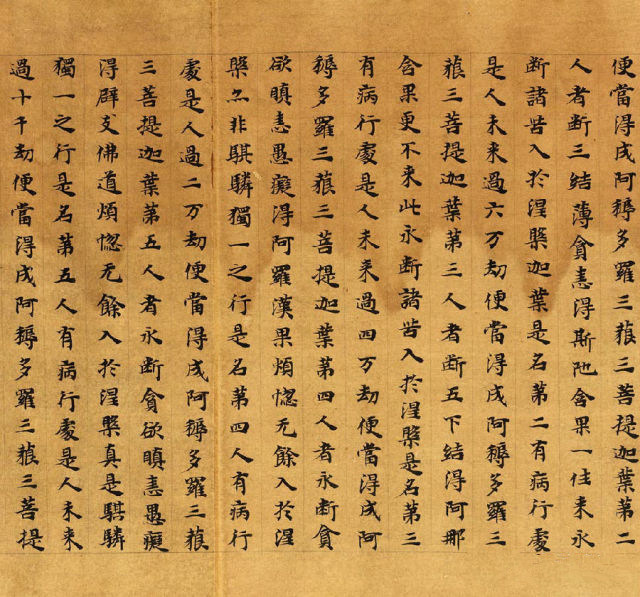 便當得成阿耨多羅三藐三菩提迦葉第二
人者断三結薄貪恚得斯陁含果一往来永
断諸苦入於涅槃迦葉是名第二有病行處
是人未来過六万劫便當得成阿耨多羅三
藐三菩提迦葉第三人者断五下結得阿那
含果更不来此永断諸苦入於涅槃是名第三
有病行處是人未来過四万劫便當得成阿
耨多羅三藐三菩提迦葉第四人者永断貪
欲瞋恚愚癡得阿羅漢果煩惱无餘入於涅
槃亦非騏驎獨一之行是名第四人有病行
處是人過二万劫便當得成阿耨多羅三藐
三菩提迦葉第五人者永断貪欲瞋恚愚癡
得辟支佛道煩惱无餘入於涅槃真是騏驎
獨一之行是名第五人有病行處是人未来
過十千劫便當得成阿耨多羅三藐三菩提